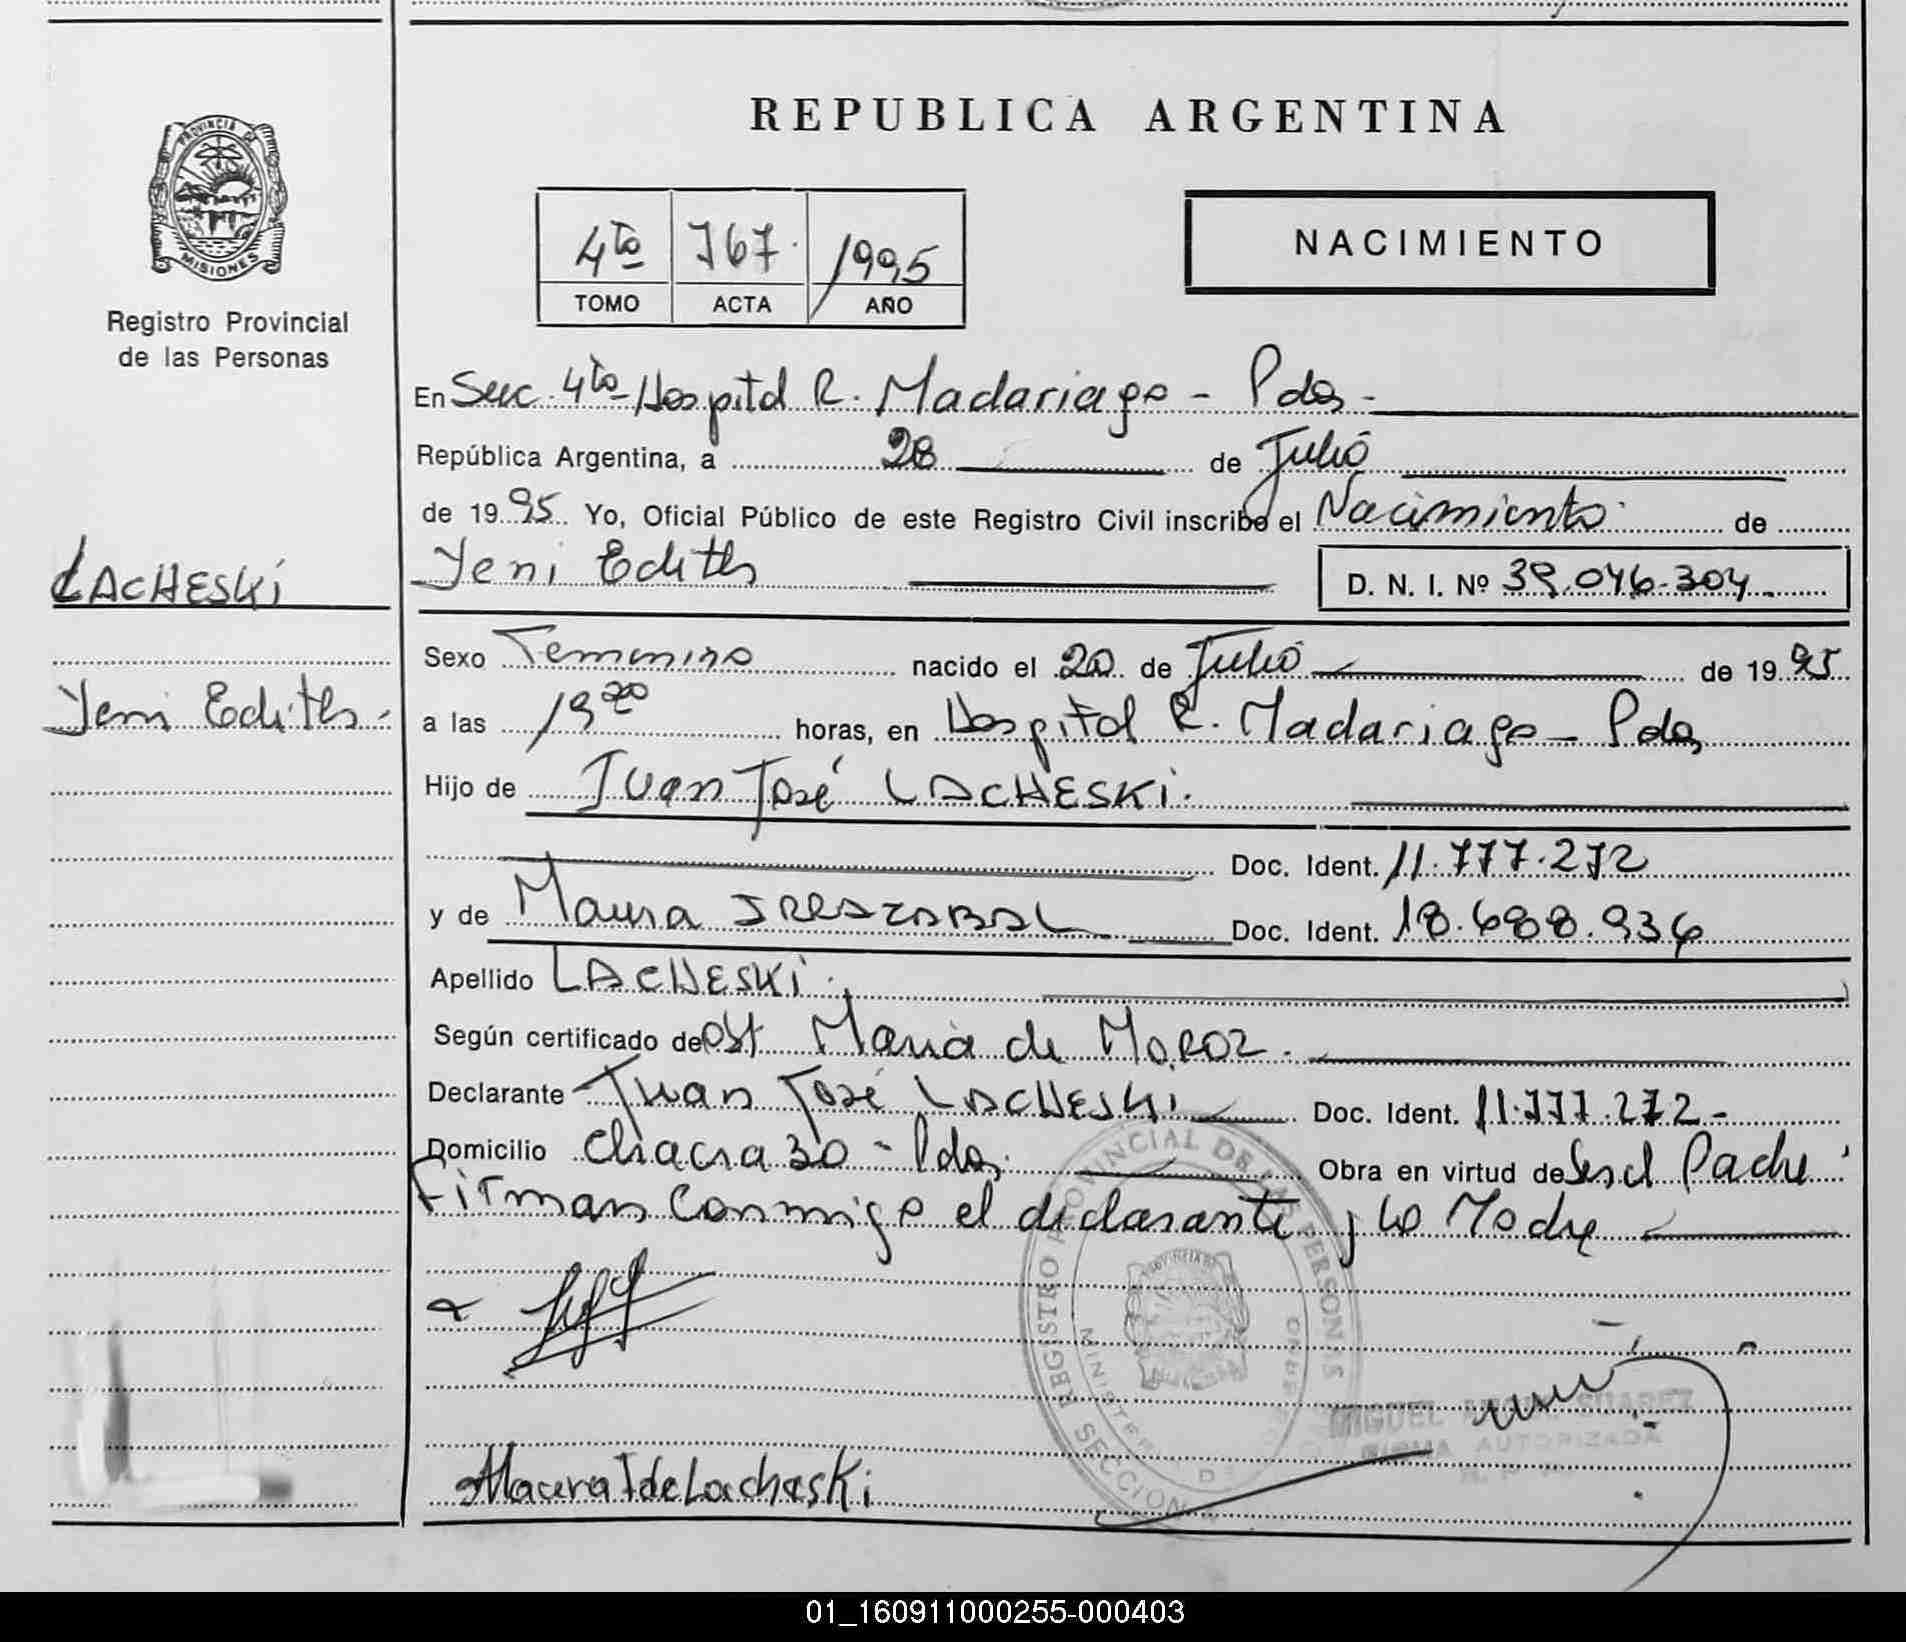 REPUBLICA ARGENTINA
PROVINCIA DE
MISIONES
Registro Provincial
de las Personas
4to 767 1995
TOMO ACTA AÑO
NACIMIENTO
En Secc. 4to Hospital R. Madariaga - Pdas -
República Argentina, a 28 de Julio
de 1995 Yo, Oficial Público de este Registro Civil inscribo el Nacimiento de
Yeni Edith
D. N. I. Nº 39.046.304
LACHESKI
Yeni Edith -
Sexo Femenino nacido el 20 de Julio de 1995
a las 19 20 horas, en Hospital R. Madariaga - Pdas
Hijo de Juan José LACHESKI.
Doc. Ident. 11.777.272
y de Maura IRRAZABAL Doc. Ident. 18.688.936
Apellido LACHESKI.
Según certificado de Obst Maria de MOROZ.
Declarante Juan José LACHESKI Doc. Ident. 11.777.272-
Domicilio Chacra 30 - Pdas. Obra en virtud de ser el Padre
Firman conmigo el declarante y la Madre
REGISTRO PROVINCIAL DE LAS PERSONAS
SECCION
MIGUEL ANGEL SUAREZ
FIRMA AUTORIZADA
Maura I de Lacheski
01_160911000255-000403